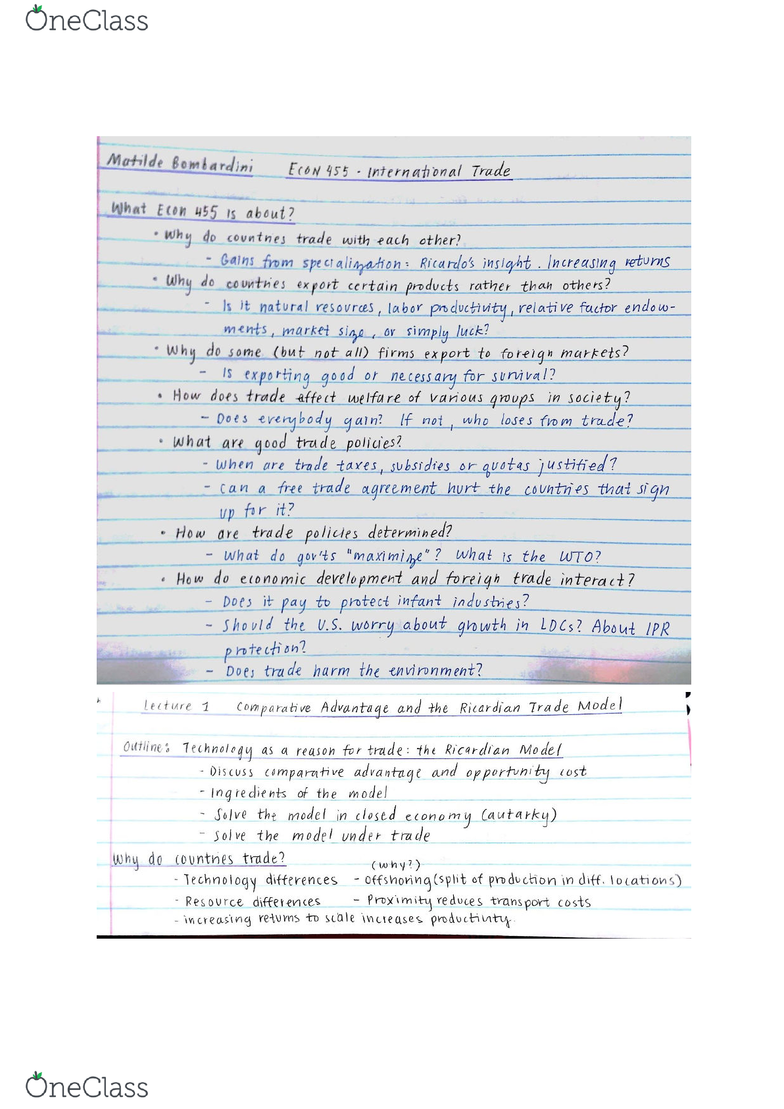 OneClass
Matilde Bombardini Econ 455 - International Trade
What Econ 455 is about?
• Why do countries trade with each other?
- Gains from specialization: Ricardo's insight. Increasing returns
• Why do countries export certain products rather than others?
- Is it natural resources, labor productivity, relative factor endow-
ments, market size, or simply luck?
• Why do some (but not all) firms export to foreign markets?
- Is exporting good or necessary for survival?
• How does trade affect welfare of various groups in society?
- Does everybody gain? If not, who loses from trade?
• What are good trade policies?
- When are trade taxes, subsidies or quotas justified?
- Can a free trade agreement hurt the countries that sign
up for it?
• How are trade policies determined?
- What do gov'ts "maximize"? What is the WTO?
• How do economic development and foreign trade interact?
- Does it pay to protect infant industries?
- Should the U.S. worry about growth in LDCs? About IPR
protection?
- Does trade harm the environment?
Lecture 1 Comparative Advantage and the Ricardian Trade Model
Outline: Technology as a reason for trade: the Ricardian Model
- Discuss comparative advantage and opportunity cost
- Ingredients of the model
- Solve the model in closed economy (autarky)
- Solve the model under trade
Why do countries trade? (why?)
- Technology differences - Offshoring (split of production in diff. locations)
- Resource differences - Proximity reduces transport costs
- increasing returns to scale increases productivity.
OneClass